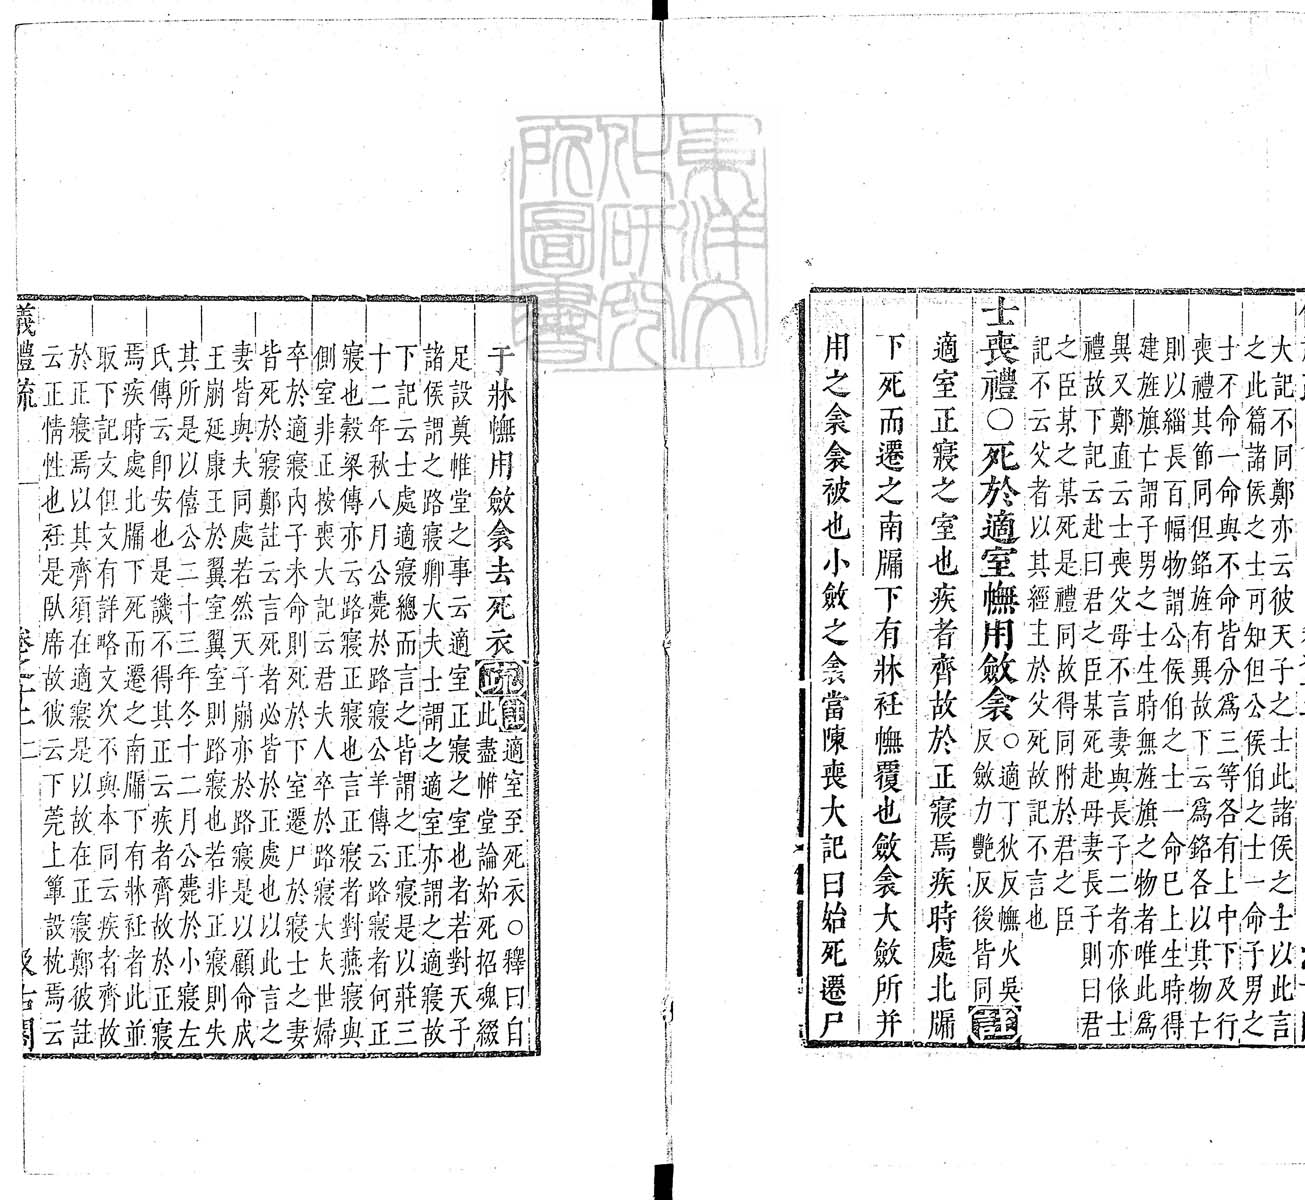 大記不同鄭亦云彼天子之士此諸侯之士以此言
之此篇諸侯之士可知但公侯伯之士一命子男之
士不命一命與不命皆分爲三等各有上中下及行
喪禮其節同但銘旌有異故下云爲銘各以其物亡
則以緇長百幅物謂公侯伯之士一命已上生時得
建旌旗亡謂子男之士生時無旌旗之物者唯此爲
異又鄭直云士喪父母不言妻與長子二者亦依士
禮故下記云赴曰君之臣某死赴母妻長子則曰君
之臣某之某死是禮同故得同附於君之臣
記不云父者以其經主於父死故記不言也
士喪禮○死於適室幠用斂衾
○適丁狄反幠火吳
反斂力艷反後皆同
註
適室正寢之室也疾者齊故於正寢焉疾時處北牖
下死而遷之南牖下有牀衽幠覆也斂衾大斂所并
用之衾衾被也小斂之衾當陳喪大記曰始死遷尸
于牀幠用斂衾去死衣
疏
註適室至死衣○釋曰自
此盡帷堂論始死招魂綴
足設奠帷堂之事云適室正寢之室也者若對天子
諸侯謂之路寢卿大夫士謂之適室亦謂之適寢故
下記云士處適寢總而言之皆謂之正寢是以莊三
十二年秋八月公薨於路寢公羊傳云路寢者何正
寢也穀梁傳亦云路寢正寢也言正寢者對燕寢與
側室非正按喪大記云君夫人卒於路寢大夫世婦
卒於適寢內子未命則死於下室遷尸於寢士之妻
皆死於寢鄭註云言死者必皆於正處也以此言之
妻皆與夫同處若然天子崩亦於路寢是以顧命成
王崩延康王於翼室翼室則路寢也若非正寢則失
其所是以僖公二十三年冬十二月公薨於小寢左
氏傳云卽安也是譏不得其正云疾者齊故於正寢
焉疾時處北牖下死而遷之南牖下有牀衽者此並
取下記文但文有詳略文次不與本同云疾者齊故
於正寢焉以其齊須在適寢是以故在正寢鄭彼註
云正情性也衽是臥席故彼云下莞上簟設枕焉云
儀禮疏 卷之十二 汲古閣
東洋文化研究所圖書